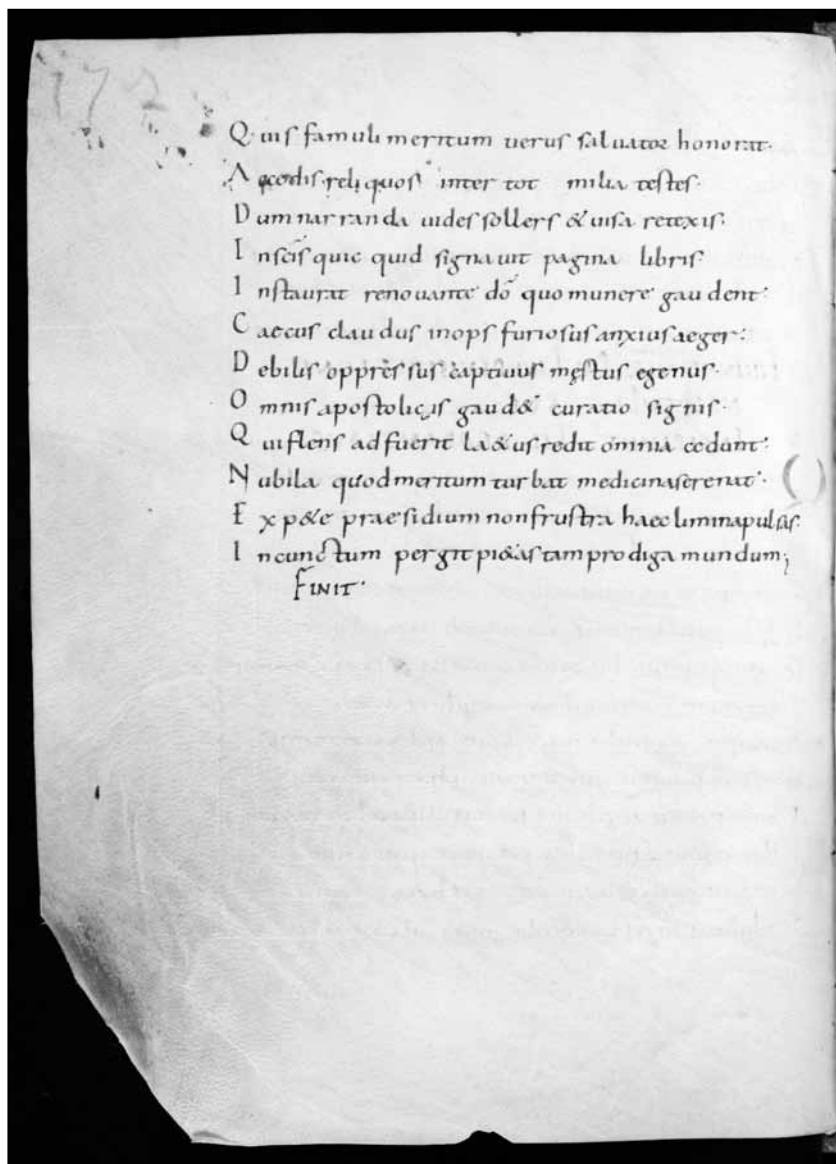 172
Q uis famuli meritum uerus saluator honorat.
A gcedis reliquos inter tot milia testes.
D um narranda uides sollers & uisa retexis.
I nscis quic quid signauit pagina libris.
I nstaurat renouante dō quo munere gaudent.
C aecus claudus inops furiosus anxius aeger.
D ebilis oppressus captiuus męstus egenus.
O mnis apostolicis gaud& curatio signis.
Q ui flens adfuerit la&us redit omnia cedunt.
N ubila quod meritum turbat medicina serenat.
E xp&e praesidium non frustra haec limina pulsas.
I n cunctum pergit pi&as tam prodiga mundum;
FINIT.